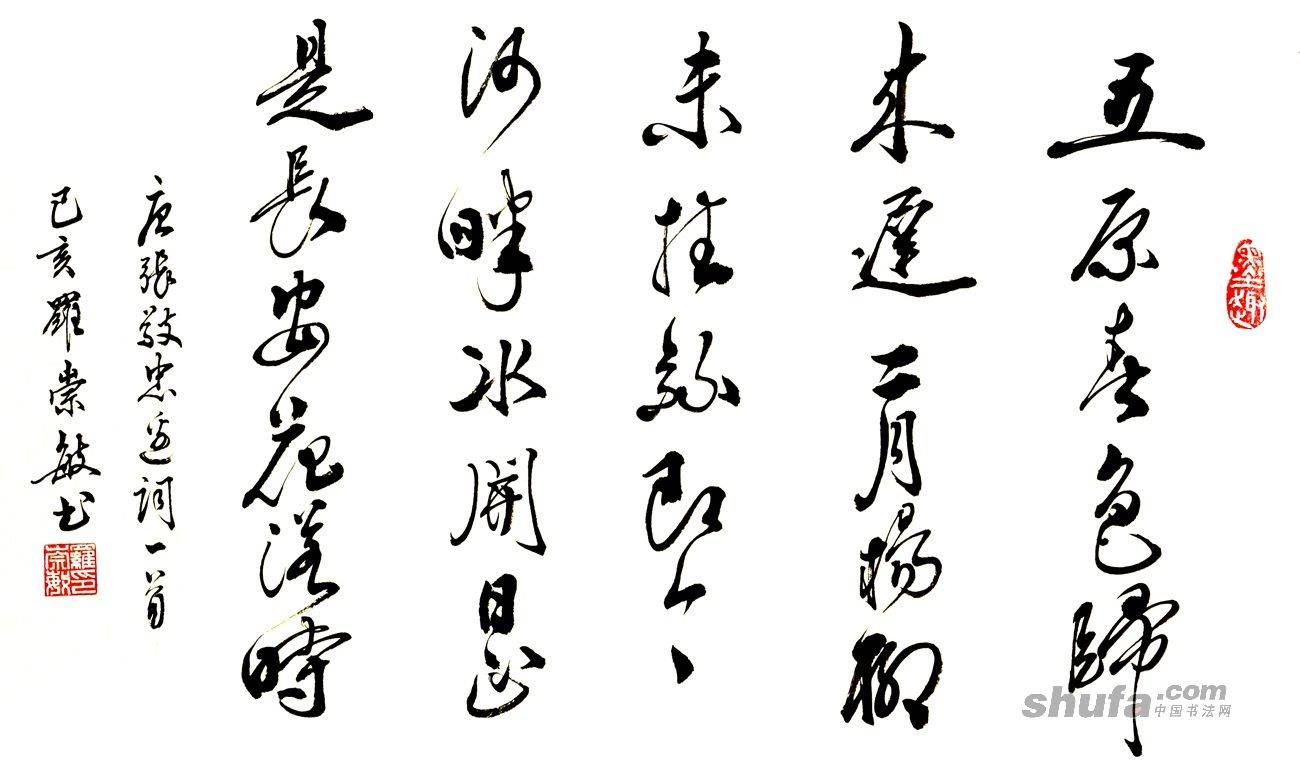 五原春色歸
来遲二月楊柳
未挂絲即今
河畔冰開日正
是長安花落時
唐張敬忠邊詞一首
己亥羅崇敏书
羅印崇敏
shufa.com
中国书法网